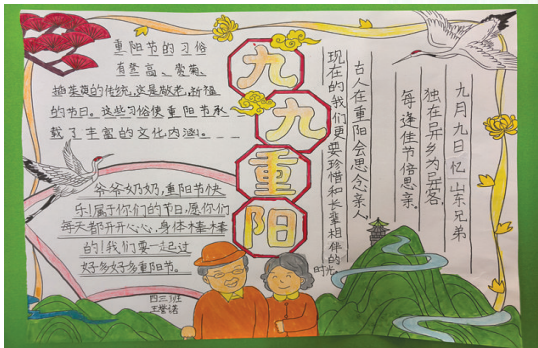 重阳节的习俗
有登高、赏菊、
插茱萸的传统,这是敬老、祈福
的节日。这些习俗使重阳节承
载了丰富的文化内涵。
九九重阳
爷爷奶奶,重阳节快
乐!属于你们的节日,愿你们
每天都开开心心,身体棒棒
的!我们要一起过
好多好多重阳节。
四三班
九月九日忆山东兄弟
独在异乡为异客,
每逢佳节倍思亲。
古人在重阳会思念亲人
现在的我们更要珍惜和长辈相伴的
时光